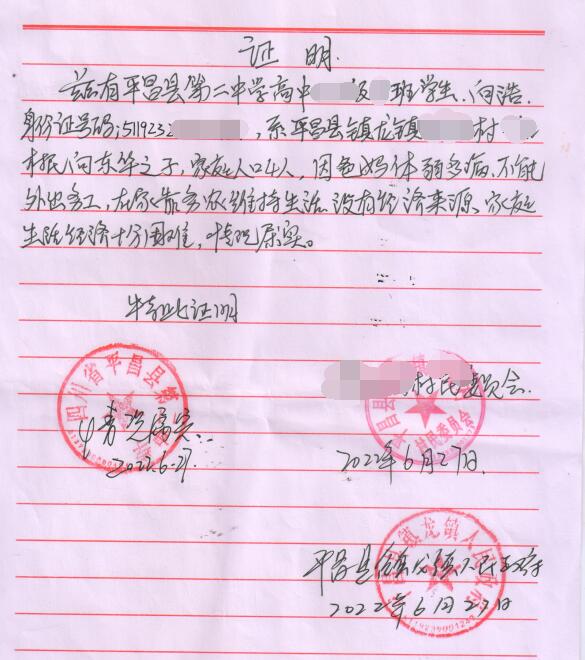 证明
兹有平昌县第二中学高中 级 班学生、向浩,
身份证号码:511923 ,系平昌县镇龙镇 村
村民向东华之子,家庭人口4人,因爸妈体弱多病,不能
外出务工,在家靠务农维持生活。没有经济来源,家庭
生活经济十分困难,情况属实。
特此证明
村民委员会
情况属实
2022.6.27.
2022年6月27日
平昌县镇龙镇人民政府
2022年6月27日
四川省平昌县第
村民委员会
镇龙镇人民政府